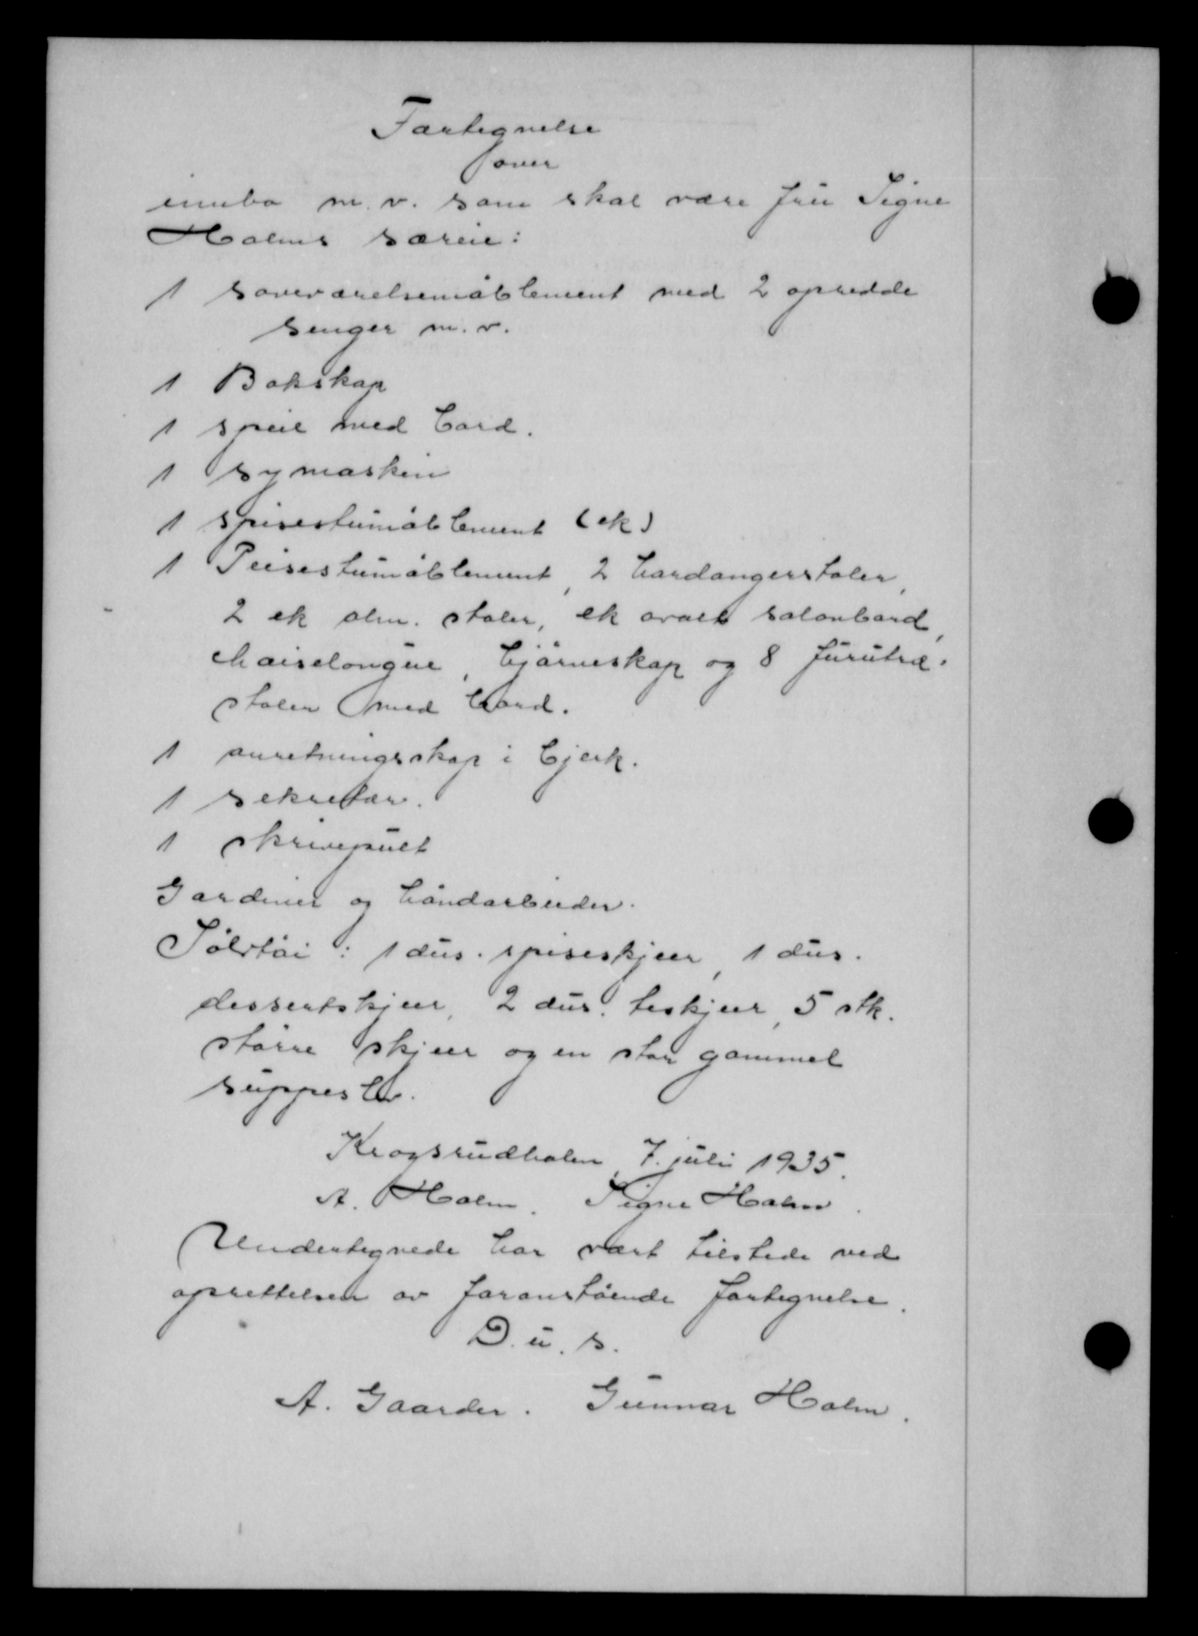 Fortegnelse
over
innbo m. v. som skal være fru Signe
Holms særeie:
1 soveværelsemöblement med 2 opredde
senger m. v.
1 Bokskap
1 speil med bord.
1 symaskin
1 spisestumöblement (ek)
1 Peisestumöblement, 2 hardangerstoler,
2 ek alm. stoler, ek ovalt salonbord,
chaiselongue, hjörneskap og 8 furutræ-
stoler med bord.
1 anretningsskap i bjerk.
1 sekretær.
1 skrivepult
Gardiner og håndarbeider.
Sölvtöi: 1 dus. spiseskjeer, 1 dus.
dessertskjeer, 2 dus. teskjeer, 5 stk.
större skjeer og en stor gammel
suppeslev.
Krogsrudholm, 7. juli 1935.
A. Holm. Signe Holm.
Undertegnede har vært tilstede ved
oprettelsen av foranstående fortegnelse.
D. u. s.
A. Gaarder. Gunnar Holm.